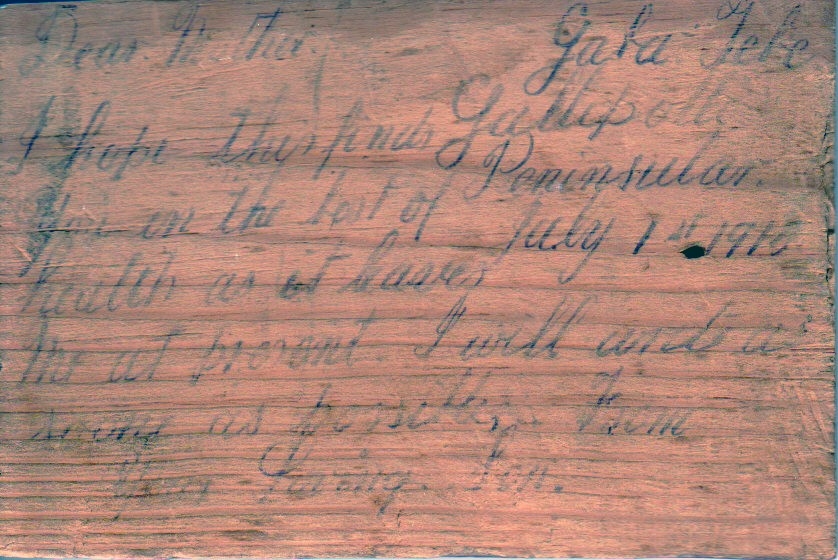 Dear Mother. Gaba Tebe
Gallipoli
I hope this finds Peninsular.
You in the best of July 1st 191
health as it leaves
me at present. I will and as
as possible From
Your Loving Son.